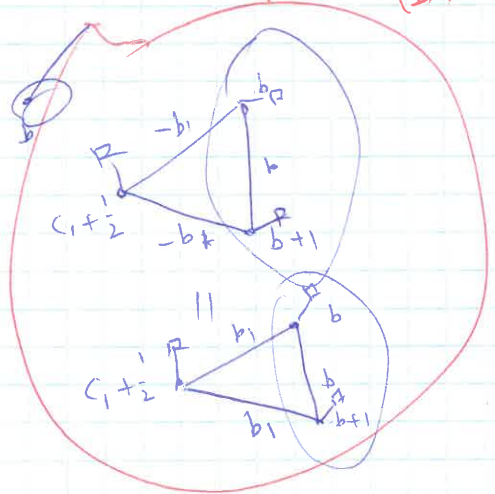 b
-b₁
b
b
C₁ + 1/2
b+1
||
b₁
b
C₁ + 1/2
b
b₁
b+1